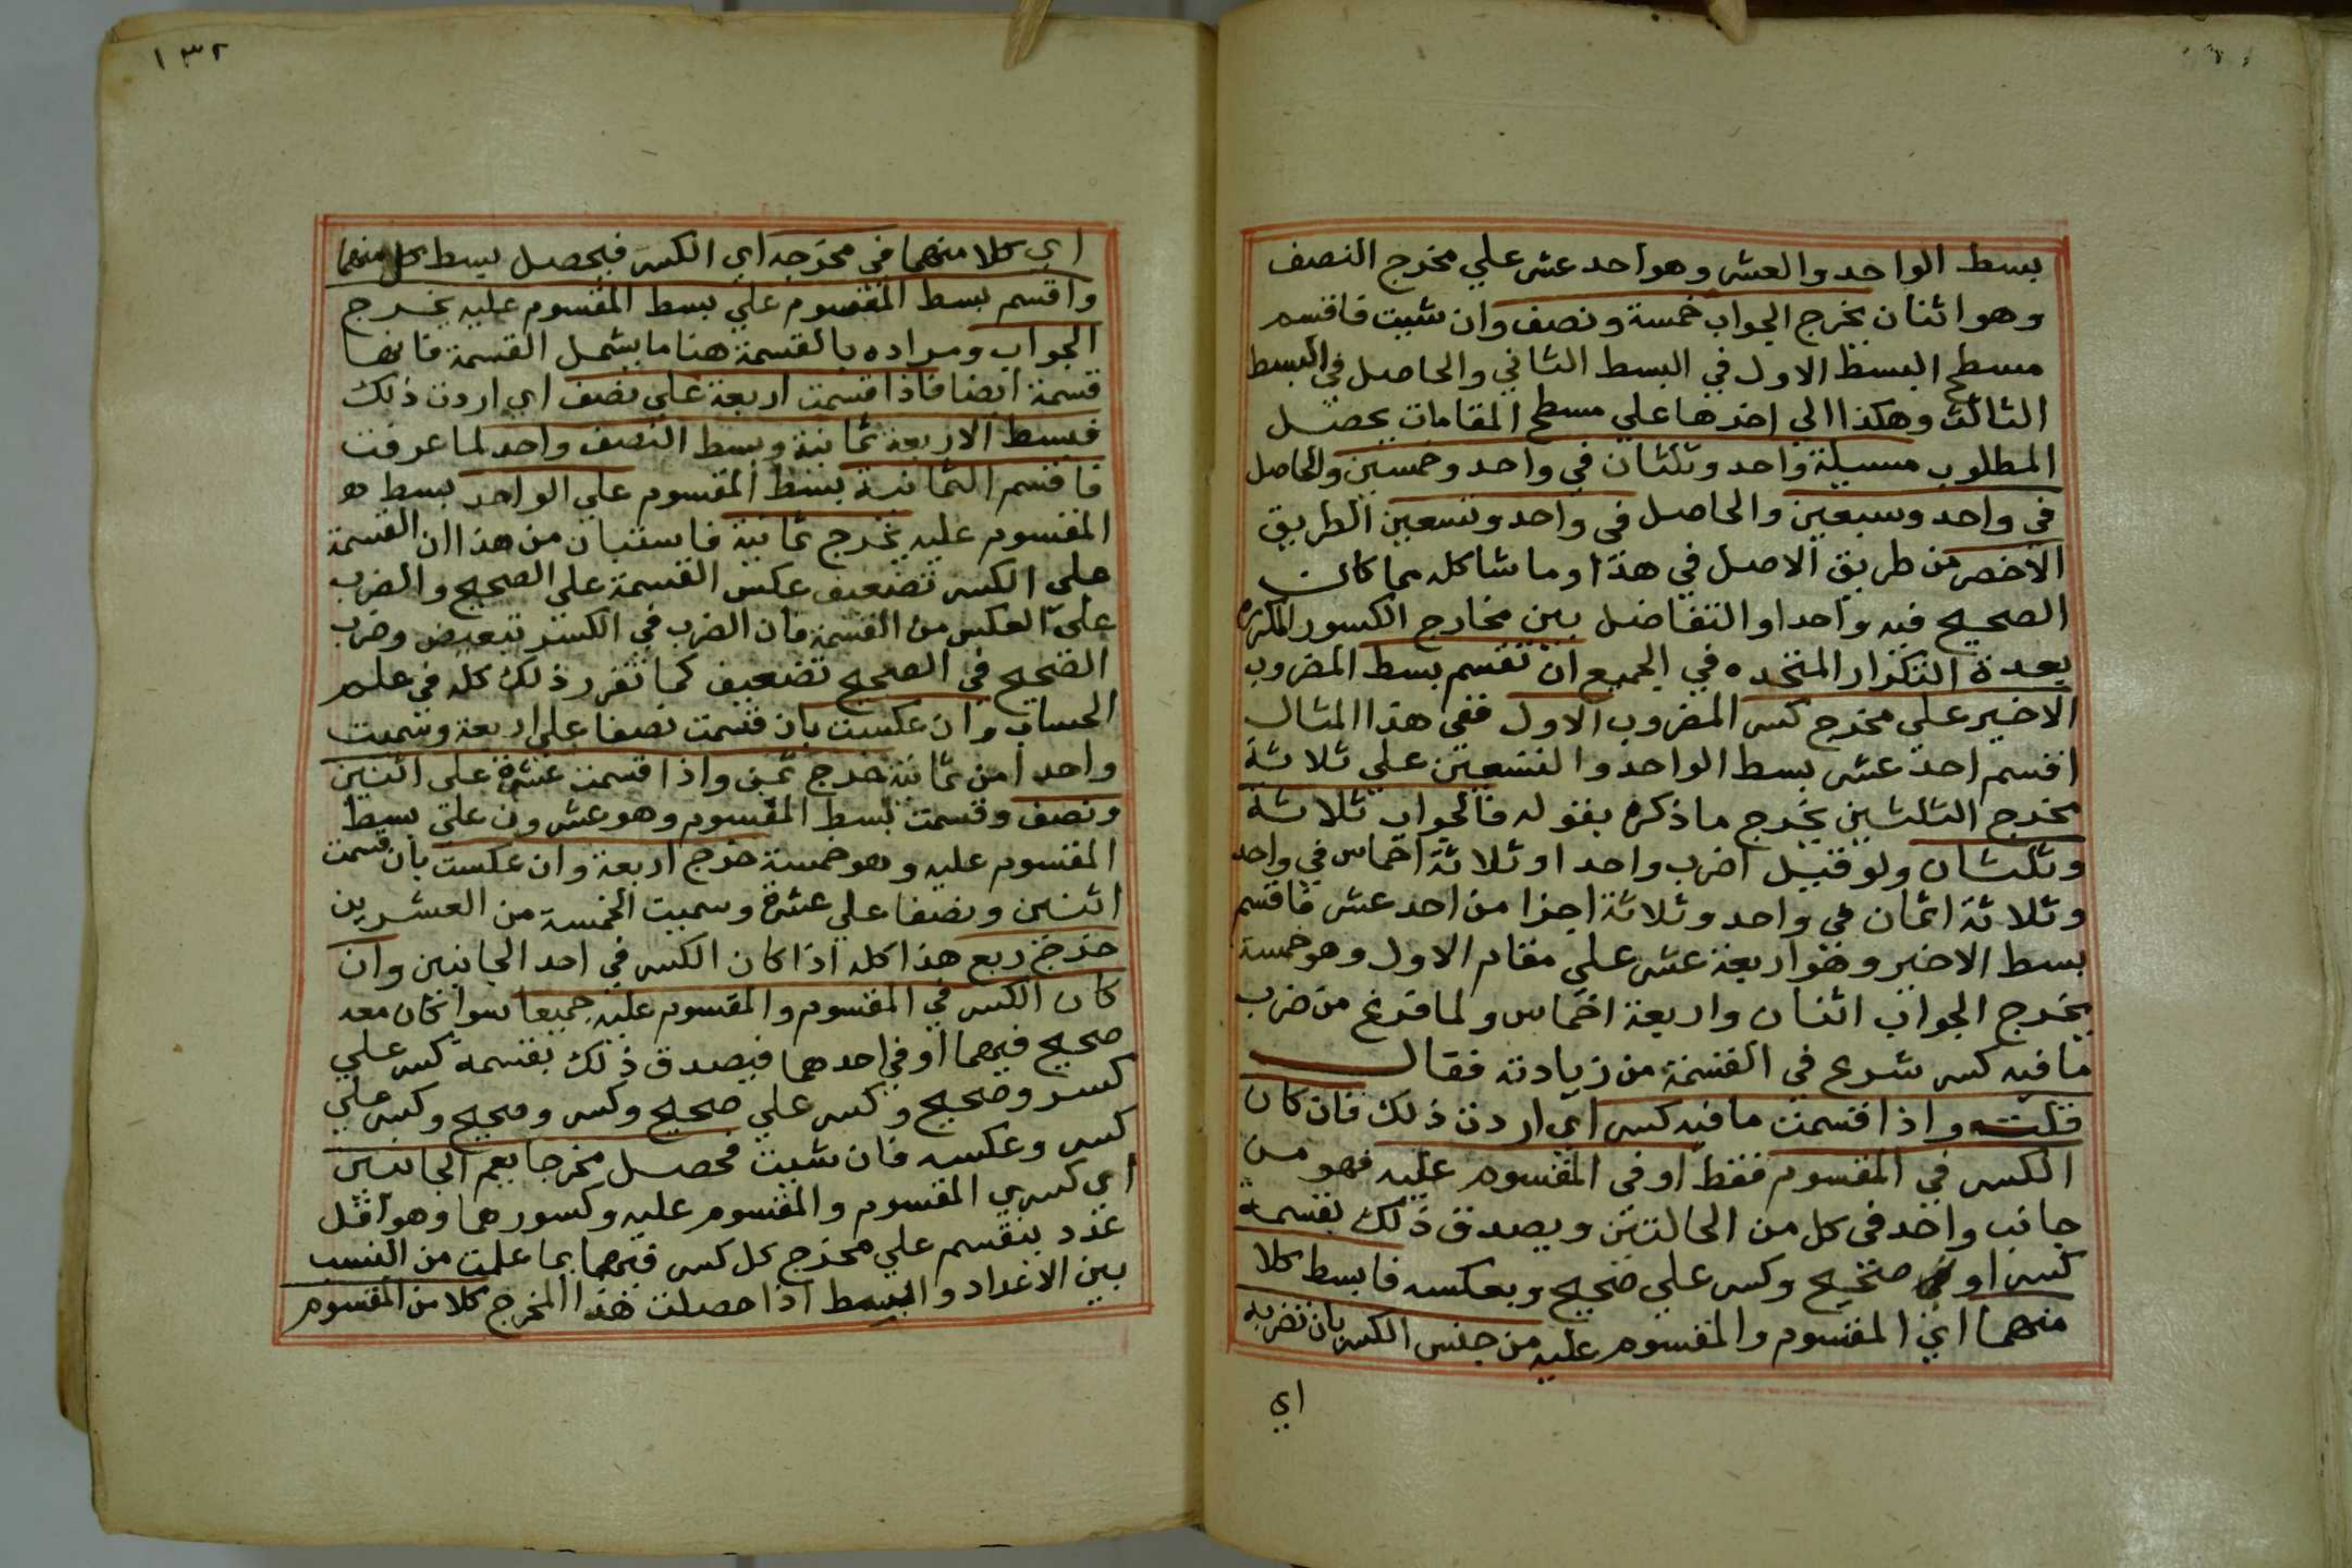 بسط الواحد والعشر وهو احد عشر علي مخرج النصف
وهو اثنان يخرج الجواب خمسة ونصف وان شيت فاقسم
مسطح البسط الاول في البسط الثاني والحاصل في البسط
الثالث وهكذا الي اخرها علي مسطح المقامات يحصل
المطلوب مسيلة واحد وثلثان في واحد وخمسين والحاصل
في واحد وسبعين والحاصل في واحد وتسعين الطريق
الاخصر من طريق الاصل في هذا وما شاكله مما كان
الصحيح فيه واحدا والتفاضل بين مخارج الكسور المكررة
بعدة التكرار المتحده في الجميع ان تقسم بسط المضروب
الاخير علي مخرج كسر المضروب الاول ففي هذا المثال
اقسم احد عشر بسط الواحد والتسعين علي ثلاثة
مخرج الثلثين يخرج ما ذكره بقوله فالجواب ثلاثة
وثلثان ولو قيل اضرب واحدا وثلاثة اخماس في واحد
وثلاثة اثمان في واحد وثلاثة اجزا من احد عشر فاقسم
بسط الاخير وهو اربعة عشر علي مقام الاول وهو خمسة
يخرج الجواب اثنان واربعة اخماس ولما فرغ من ضرب
ما فيه كسر شرع في القسمة من زيادته فقال
قلت واذا قسمت ما فيه كسر اي اردت ذلك فان كان
الكسر في المقسوم فقط او في المقسوم عليه فهو من
جانب واحد في كل من الحالتين ويصدق ذلك بقسمة
كسر او صحيح وكسر علي صحيح وبعكسه فابسط كلا
منهما اي المقسوم والمقسوم عليه من جنس الكسر بان تضربه
اي
١٣٢
اي كلا منهما في مخرجه اي الكسر فيحصل بسط كل منهما
واقسم بسط المقسوم علي بسط المقسوم عليه يخرج
الجواب ومراده بالقسمة هنا ما يشمل القسمة فانها
قسمة ايضا فاذا قسمت اربعة علي نصف اي اردت ذلك
فبسط الاربعة ثمانية وبسط النصف واحد لما عرفت
فاقسم الثمانية بسط المقسوم علي الواحد بسط
المقسوم عليه يخرج ثمانية فاستبان من هذا ان القسمة
علي الكسر تضعيف عكس القسمة علي الصحيح والضرب
علي العكس من القسمة فان الضرب في الكسر تبعيض وضرب
الصحيح في الصحيح تضعيف كما تقرر ذلك كله في علم
الحساب وان عكست بان قسمت نصفا علي اربعة وسميت
واحدا من ثمانية خرج ثمن واذا قسمت عشرة علي اثنين
ونصف وقسمت بسط المقسوم وهو عشرون علي بسط
المقسوم عليه وهو خمسة خرج اربعة وان عكست بان قسمت
اثنين ونصفا علي عشرة وسميت الخمسة من العشرين
خرج ربع هذا كله اذا كان الكسر في احد الجانبين وان
كان الكسر في المقسوم والمقسوم عليه جميعا سوا كان معه
صحيح فيهما او في احدهما فيصدق ذلك بقسمة كسر علي
كسر وصحيح وكسر علي صحيح وكسر وصحيح وكسر علي
كسر وعكسه فان شيت فحصل مخرجا يعم الجانبين
اي كسري المقسوم والمقسوم عليه وكسورهما وهو اقل
عدد ينقسم علي مخرج كل كسر فيهما بما علمت من النسب
بين الاعداد وابسط اذا حصلت هذا المخرج كلا من المقسوم